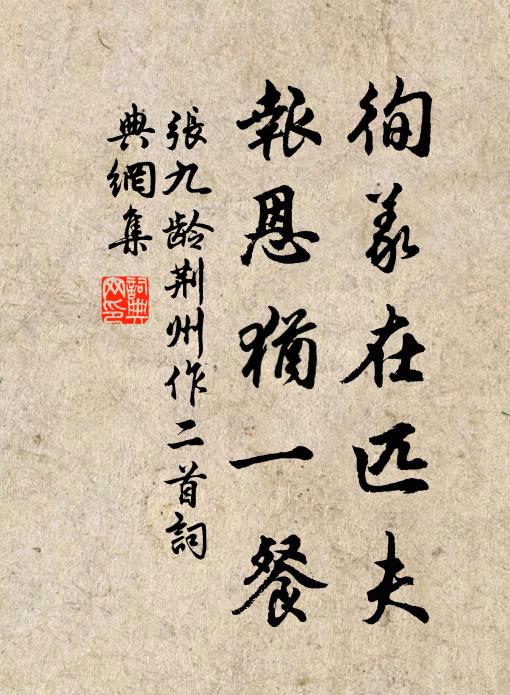 徇義在匹夫
報恩猶一餐
張九龄荆州作二首詞
典網集
詞典網印